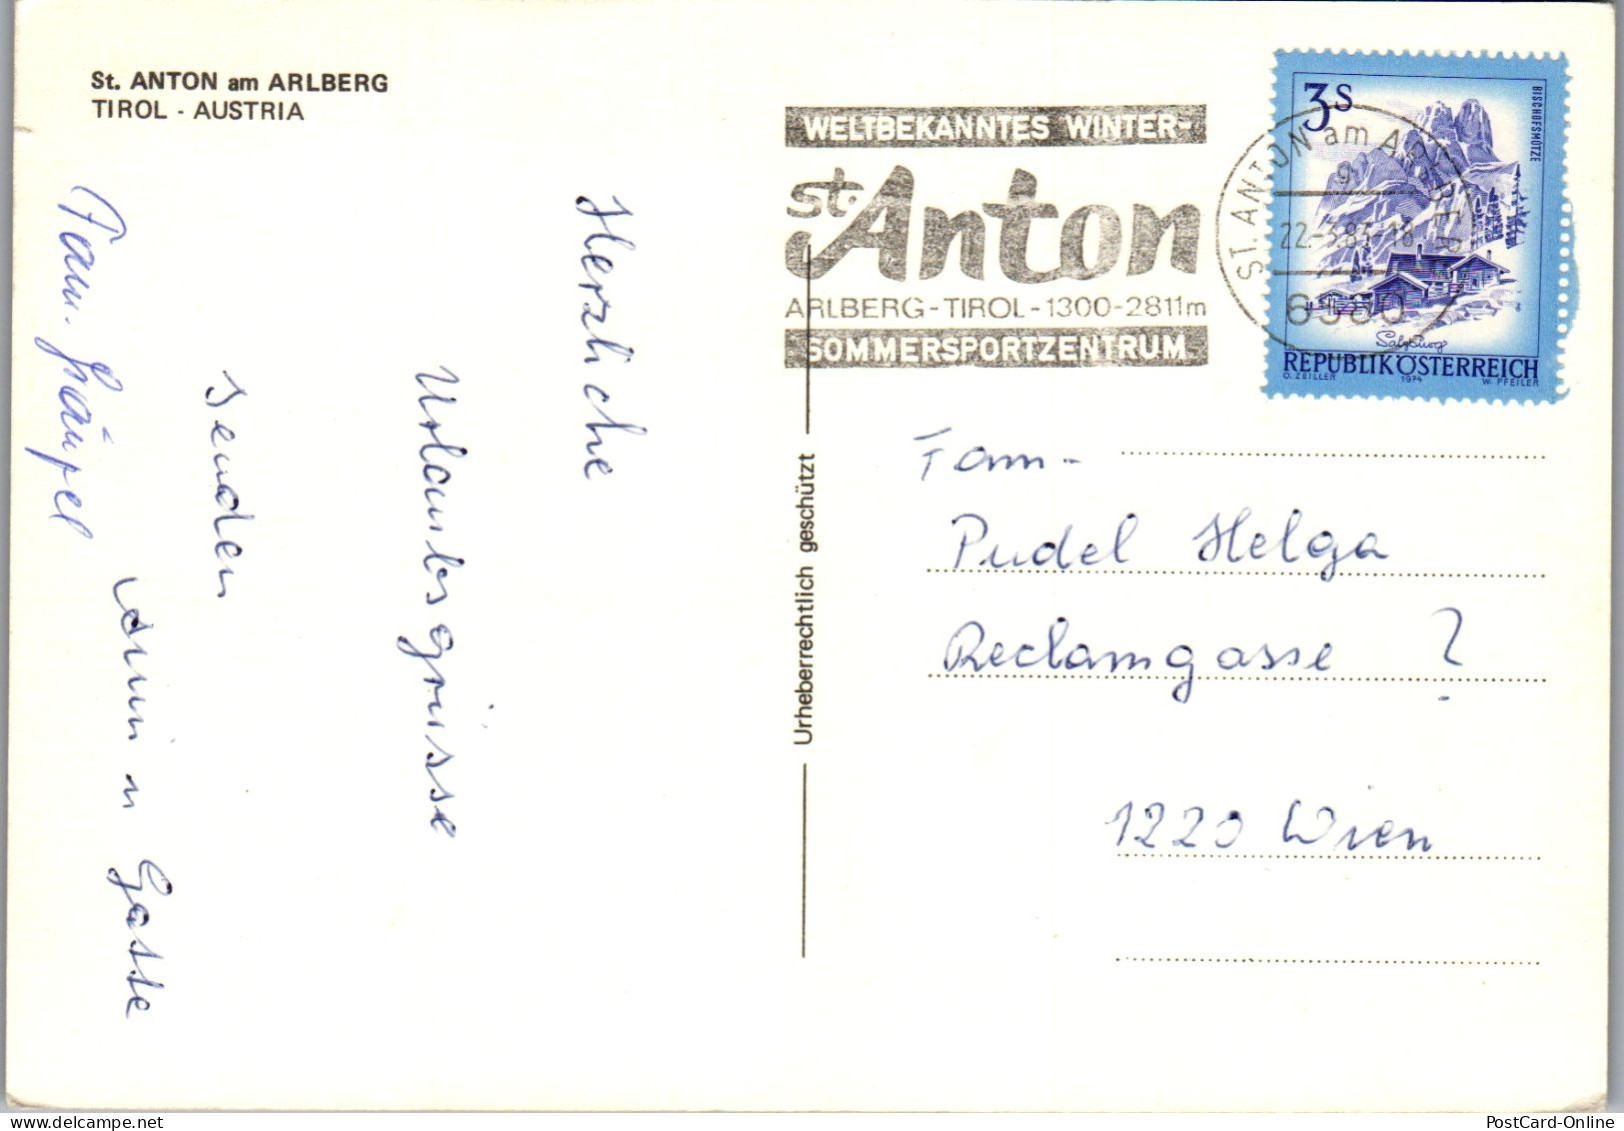 St. ANTON am ARLBERG
TIROL - AUSTRIA
Herzliche
Urlaubsgrüsse
senden
Fam.
WELTBEKANNTES WINTER-
St. Anton
ARLBERG-TIROL-1300-2811m
SOMMERSPORTZENTRUM
ST. ANTON am ARLBERG
22.-3.83-18
6580
3S
BISCHOFSMÜTZE
Salzburg
REPUBLIK ÖSTERREICH
O. ZEILLER 1974 W. PFEILER
Urheberrechtlich geschützt
Fam-
Pudel Helga
Reclamgasse ?
1220 Wien
PostCard-Online